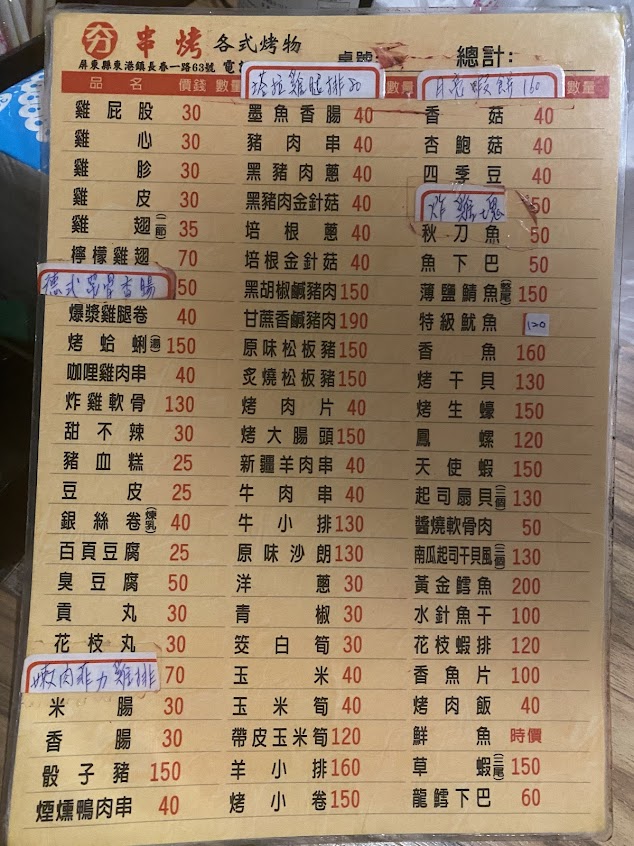 夯 串烤 各式烤物 桌號: 總計:
屏東縣東港鎮長春一路63號
品名 價錢 數量 塔拉雞腿排80 數量 月亮蝦餅 160 數量
雞屁股 30 墨魚香腸 40 香菇 40
雞心 30 豬肉串 40 杏鮑菇 40
雞胗 30 黑豬肉蔥 40 四季豆 40
雞皮 30 黑豬肉金針菇 40 炸雞塊 50
雞翅(二節) 35 培根蔥 40 秋刀魚 50
檸檬雞翅 70 培根金針菇 40 魚下巴 50
香腸 50 黑胡椒鹹豬肉 150 薄鹽鯖魚(整尾) 150
爆漿雞腿卷 40 甘蔗香鹹豬肉 190 特級魷魚 120
烤蛤蜊(湯) 150 原味松板豬 150 香魚 160
咖哩雞肉串 40 炙燒松板豬 150 烤干貝 130
炸雞軟骨 130 烤肉片 40 烤生蠔 150
甜不辣 30 烤大腸頭 150 鳳螺 120
豬血糕 25 新疆羊肉串 40 天使蝦 150
豆皮 25 牛肉串 40 起司扇貝(三個) 130
銀絲卷(煉乳) 40 牛小排 130 醬燒軟骨肉 50
百頁豆腐 25 原味沙朗 130 南瓜起司干貝風(三個) 130
臭豆腐 50 洋蔥 30 黃金鱈魚 200
貢丸 30 青椒 30 水針魚干 100
花枝丸 30 筊白筍 30 花枝蝦排 120
嫩肉菲力雞排 70 玉米 40 香魚片 100
米腸 30 玉米筍 40 烤肉飯 40
香腸 30 帶皮玉米筍 120 鮮魚 時價
骰子豬 150 羊小排 160 草蝦(三尾) 150
煙燻鴨肉串 40 烤小卷 150 龍鱈下巴 60